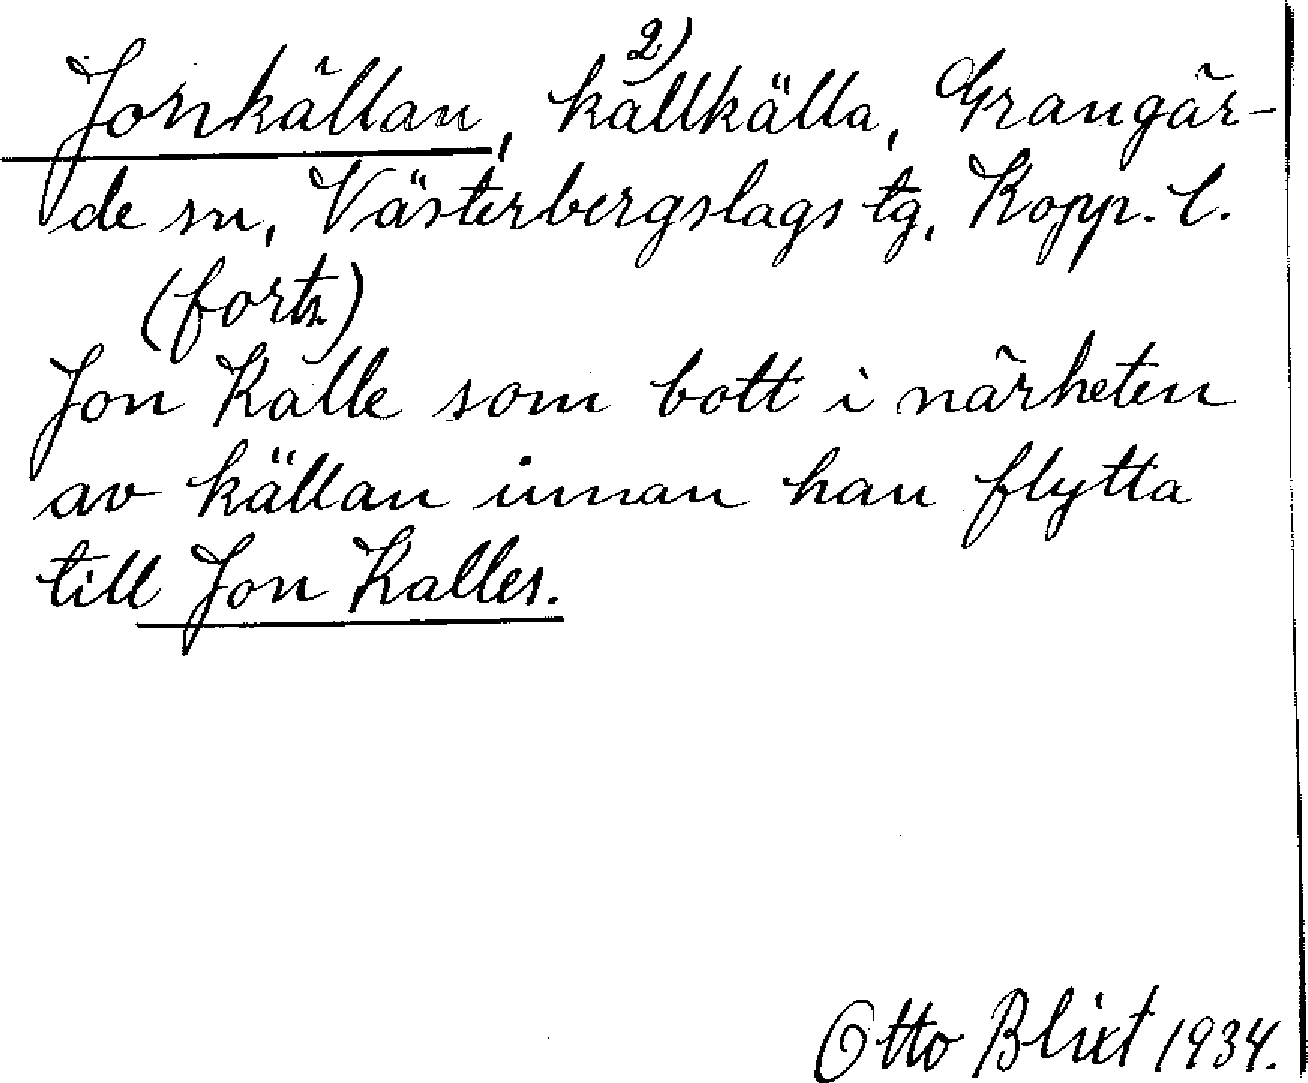 2)
Jonkällan, kallkälla, Grangär-
de sn, Västerbergslags tg, Kopp. l.
(forts.)
Jon Kalle som bott i närheten
av källan innan han flytta
till Jon Kalles.
Otto Blixt 1934.